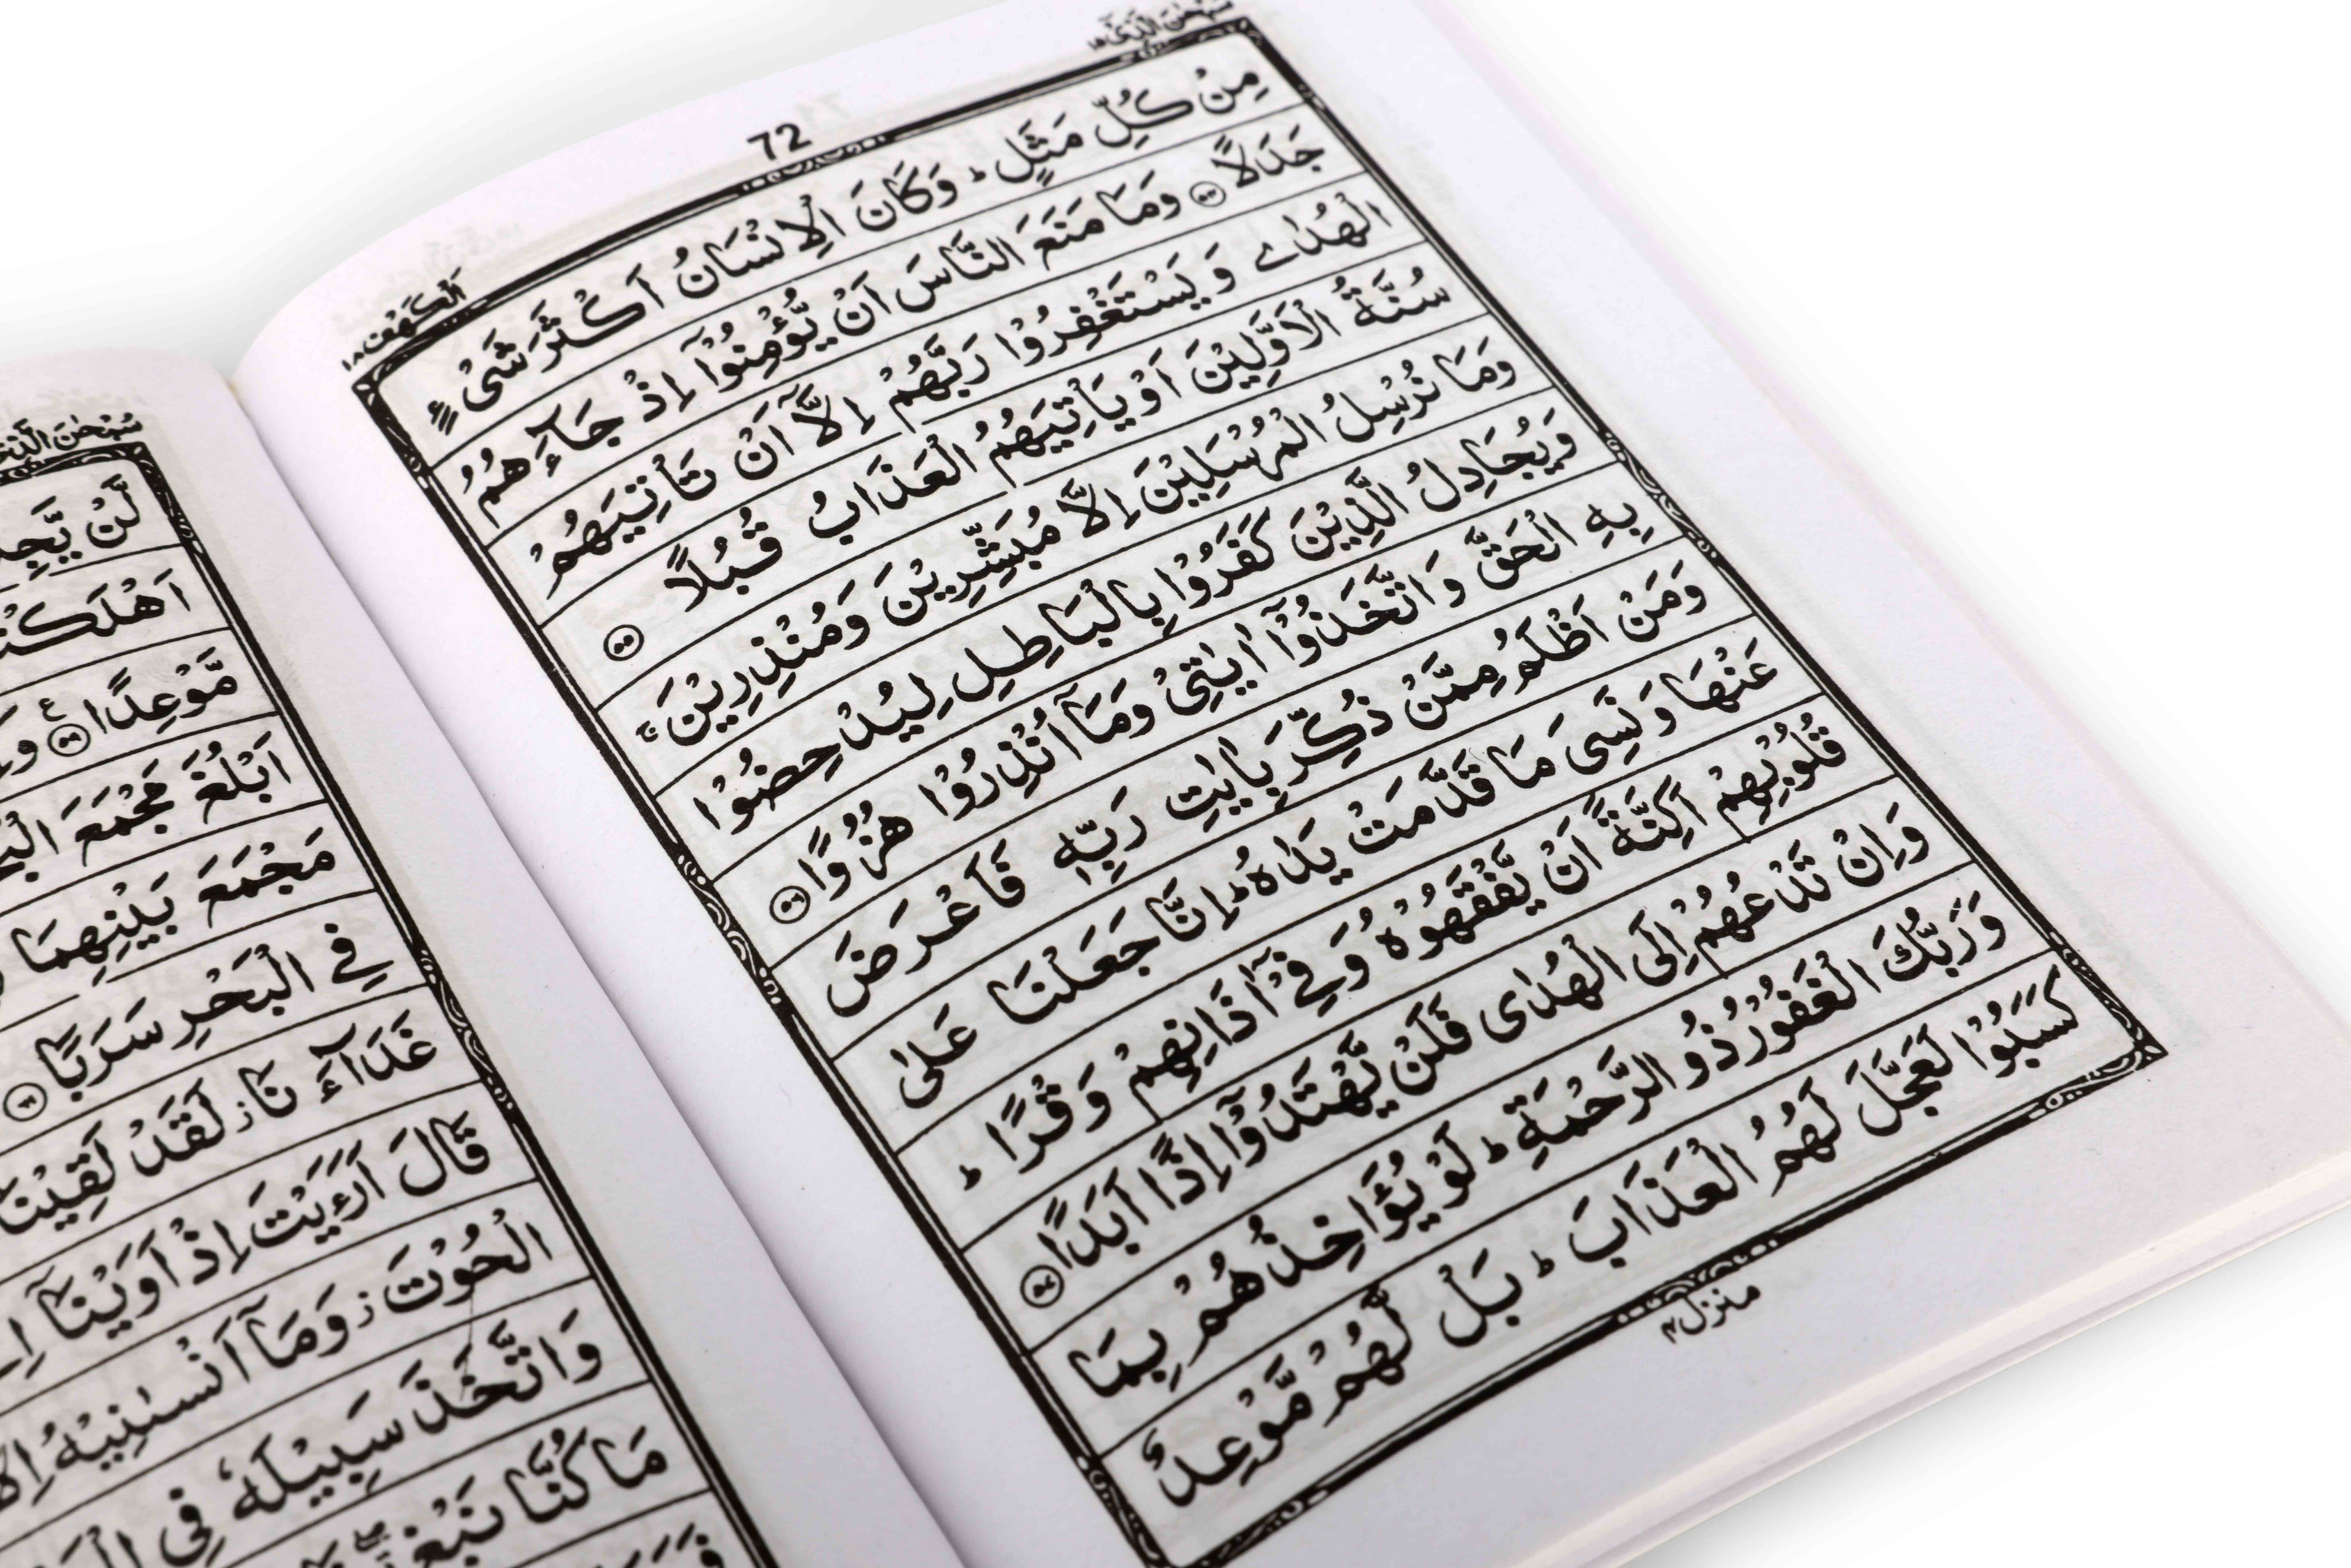 سُبْحٰنَ الَّذِیْٓ ۱۵
72
اَلْكَهْف ۱۸
مِنْ كُلِّ مَثَلٍ ؕ وَكَانَ الْاِنْسَانُ اَكْثَرَ شَیْءٍ
جَدَلًا ۝۵۴ وَمَا مَنَعَ النَّاسَ اَنْ يُّؤْمِنُوْٓا اِذْ جَآءَهُمُ
الْهُدٰی وَيَسْتَغْفِرُوْا رَبَّهُمْ اِلَّآ اَنْ تَاْتِيَهُمْ
سُنَّةُ الْاَوَّلِيْنَ اَوْ يَاْتِيَهُمُ الْعَذَابُ قُبُلًا ۝۵۵
وَمَا نُرْسِلُ الْمُرْسَلِيْنَ اِلَّا مُبَشِّرِيْنَ وَمُنْذِرِيْنَ ۚ
وَيُجَادِلُ الَّذِيْنَ كَفَرُوْا بِالْبَاطِلِ لِيُدْحِضُوْا
بِهِ الْحَقَّ وَاتَّخَذُوْٓا اٰيٰتِیْ وَمَآ اُنْذِرُوْا هُزُوًا ۝۵۶
وَمَنْ اَظْلَمُ مِمَّنْ ذُكِّرَ بِاٰيٰتِ رَبِّهٖ فَاَعْرَضَ
عَنْهَا وَنَسِیَ مَا قَدَّمَتْ يَدٰهُ ؕ اِنَّا جَعَلْنَا عَلٰی
قُلُوْبِهِمْ اَكِنَّةً اَنْ يَّفْقَهُوْهُ وَفِیْٓ اٰذَانِهِمْ وَقْرًا ؕ
وَاِنْ تَدْعُهُمْ اِلَی الْهُدٰی فَلَنْ يَّهْتَدُوْٓا اِذًا اَبَدًا ۝۵۷
وَرَبُّكَ الْغَفُوْرُ ذُو الرَّحْمَةِ ؕ لَوْ يُؤَاخِذُهُمْ بِمَا
كَسَبُوْا لَعَجَّلَ لَهُمُ الْعَذَابَ ؕ بَلْ لَّهُمْ مَّوْعِدٌ
منزل۴
سُبْحٰنَ
لَّنْ
مَّوْعِدًا ۝۵۹
اَبْلُغَ مَجْمَعَ
مَجْمَعَ بَيْنِهِمَا
فِی الْبَحْرِ سَرَبًا ۝۶۱
غَدَآءَنَا ؗ لَقَدْ لَقِيْنَا
قَالَ اَرَءَيْتَ اِذْ اَوَيْنَآ
الْحُوْتَ ؗ وَمَآ اَنْسٰىنِيْهُ
وَاتَّخَذَ سَبِيْلَهٗ فِی
مَا كُنَّا نَبْغِ